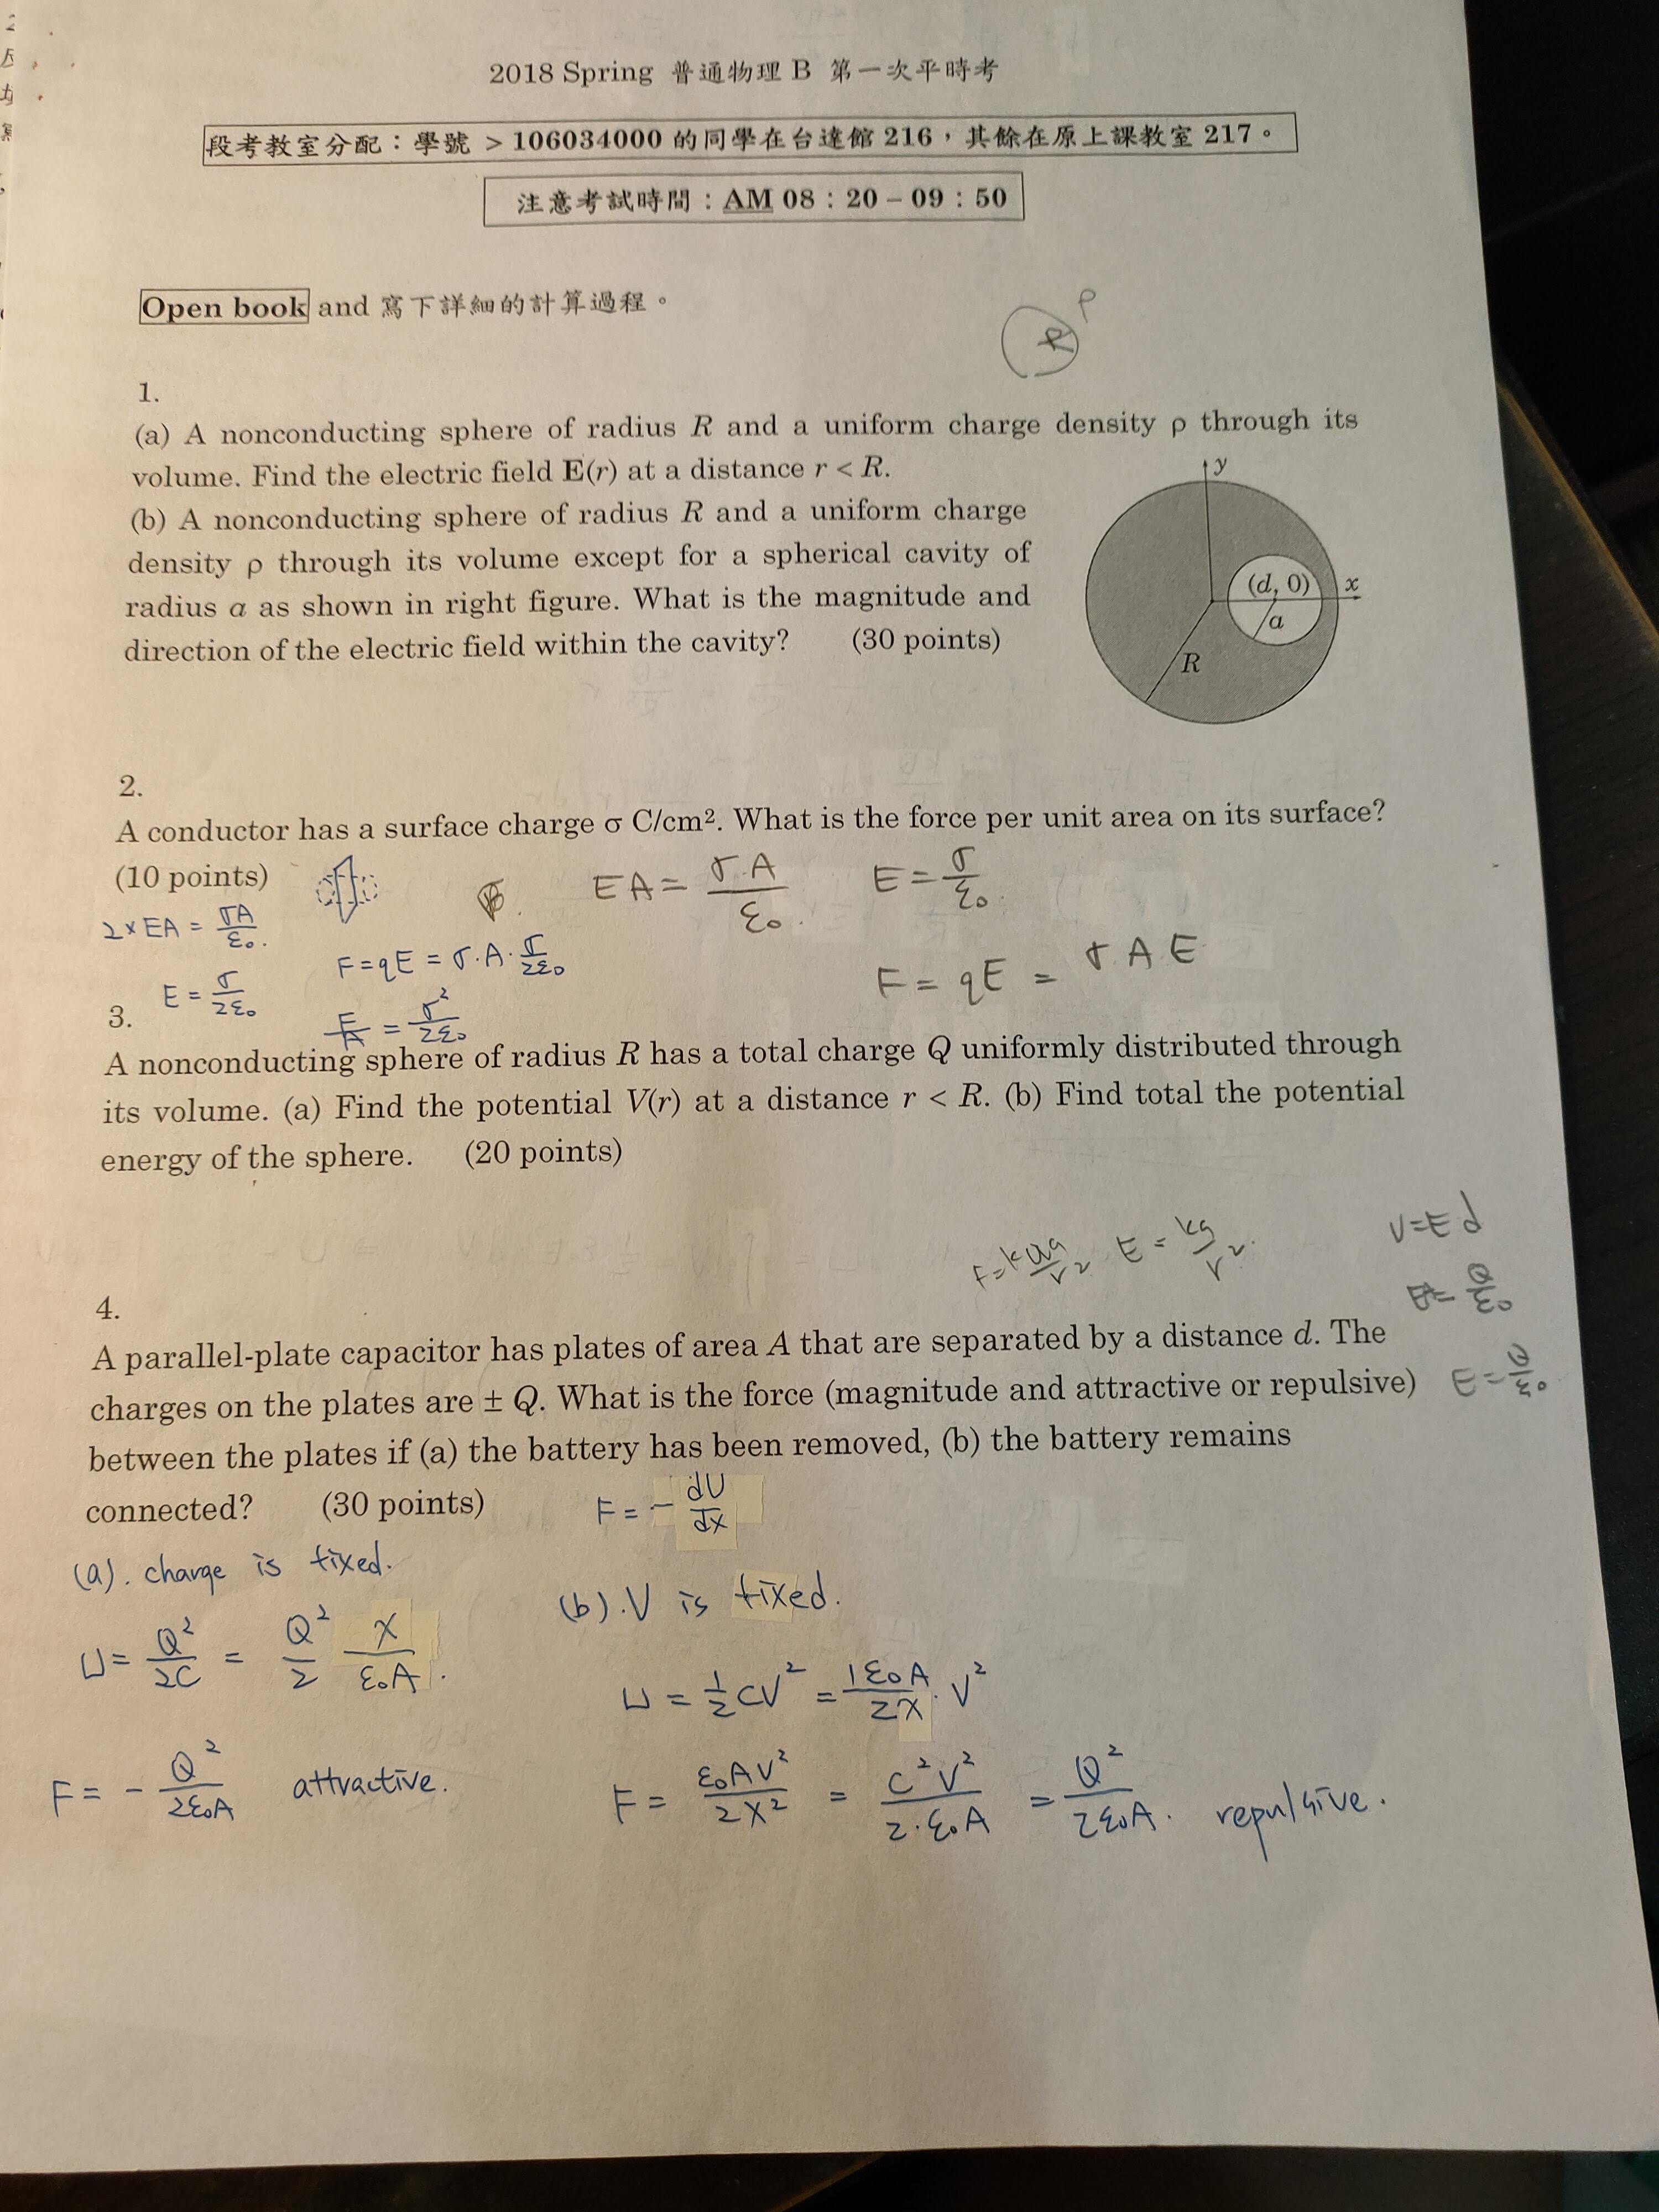 2018 Spring 普通物理 B 第一次平時考
段考教室分配：學號 > 106034000 的同學在台達館 216，其餘在原上課教室 217。
注意考試時間：AM 08：20 – 09：50
Open book and 寫下詳細的計算過程。
R ρ
1.
(a) A nonconducting sphere of radius R and a uniform charge density ρ through its
volume. Find the electric field E(r) at a distance r < R.
(b) A nonconducting sphere of radius R and a uniform charge
density ρ through its volume except for a spherical cavity of
radius a as shown in right figure. What is the magnitude and
direction of the electric field within the cavity? (30 points)
y
(d, 0) x
a
R
2.
A conductor has a surface charge σ C/cm². What is the force per unit area on its surface?
(10 points)
EA = σ.A/ε₀.
E = σ/ε₀.
2×EA = σA/ε₀.
F=qE = σ.A.σ/2ε₀
F = qE = σAE
E = σ/2ε₀
F/A = σ²/2ε₀
3.
A nonconducting sphere of radius R has a total charge Q uniformly distributed through
its volume. (a) Find the potential V(r) at a distance r < R. (b) Find total the potential
energy of the sphere. (20 points)
V=Ed
E = kq/r².
EA= Q/ε₀
4.
A parallel-plate capacitor has plates of area A that are separated by a distance d. The
charges on the plates are ± Q. What is the force (magnitude and attractive or repulsive)
E = Q/ε₀
between the plates if (a) the battery has been removed, (b) the battery remains
connected? (30 points)
F = - dU/dx
(a). charge is fixed.
(b). V is fixed.
U = Q²/2C = Q²/2 x/ε₀A.
U = 1/2 CV² = 1ε₀A/2x . V²
F = - Q²/2ε₀A attractive.
F = ε₀AV²/2x² = C²V²/2.ε₀A = Q²/2ε₀A. repulsive.